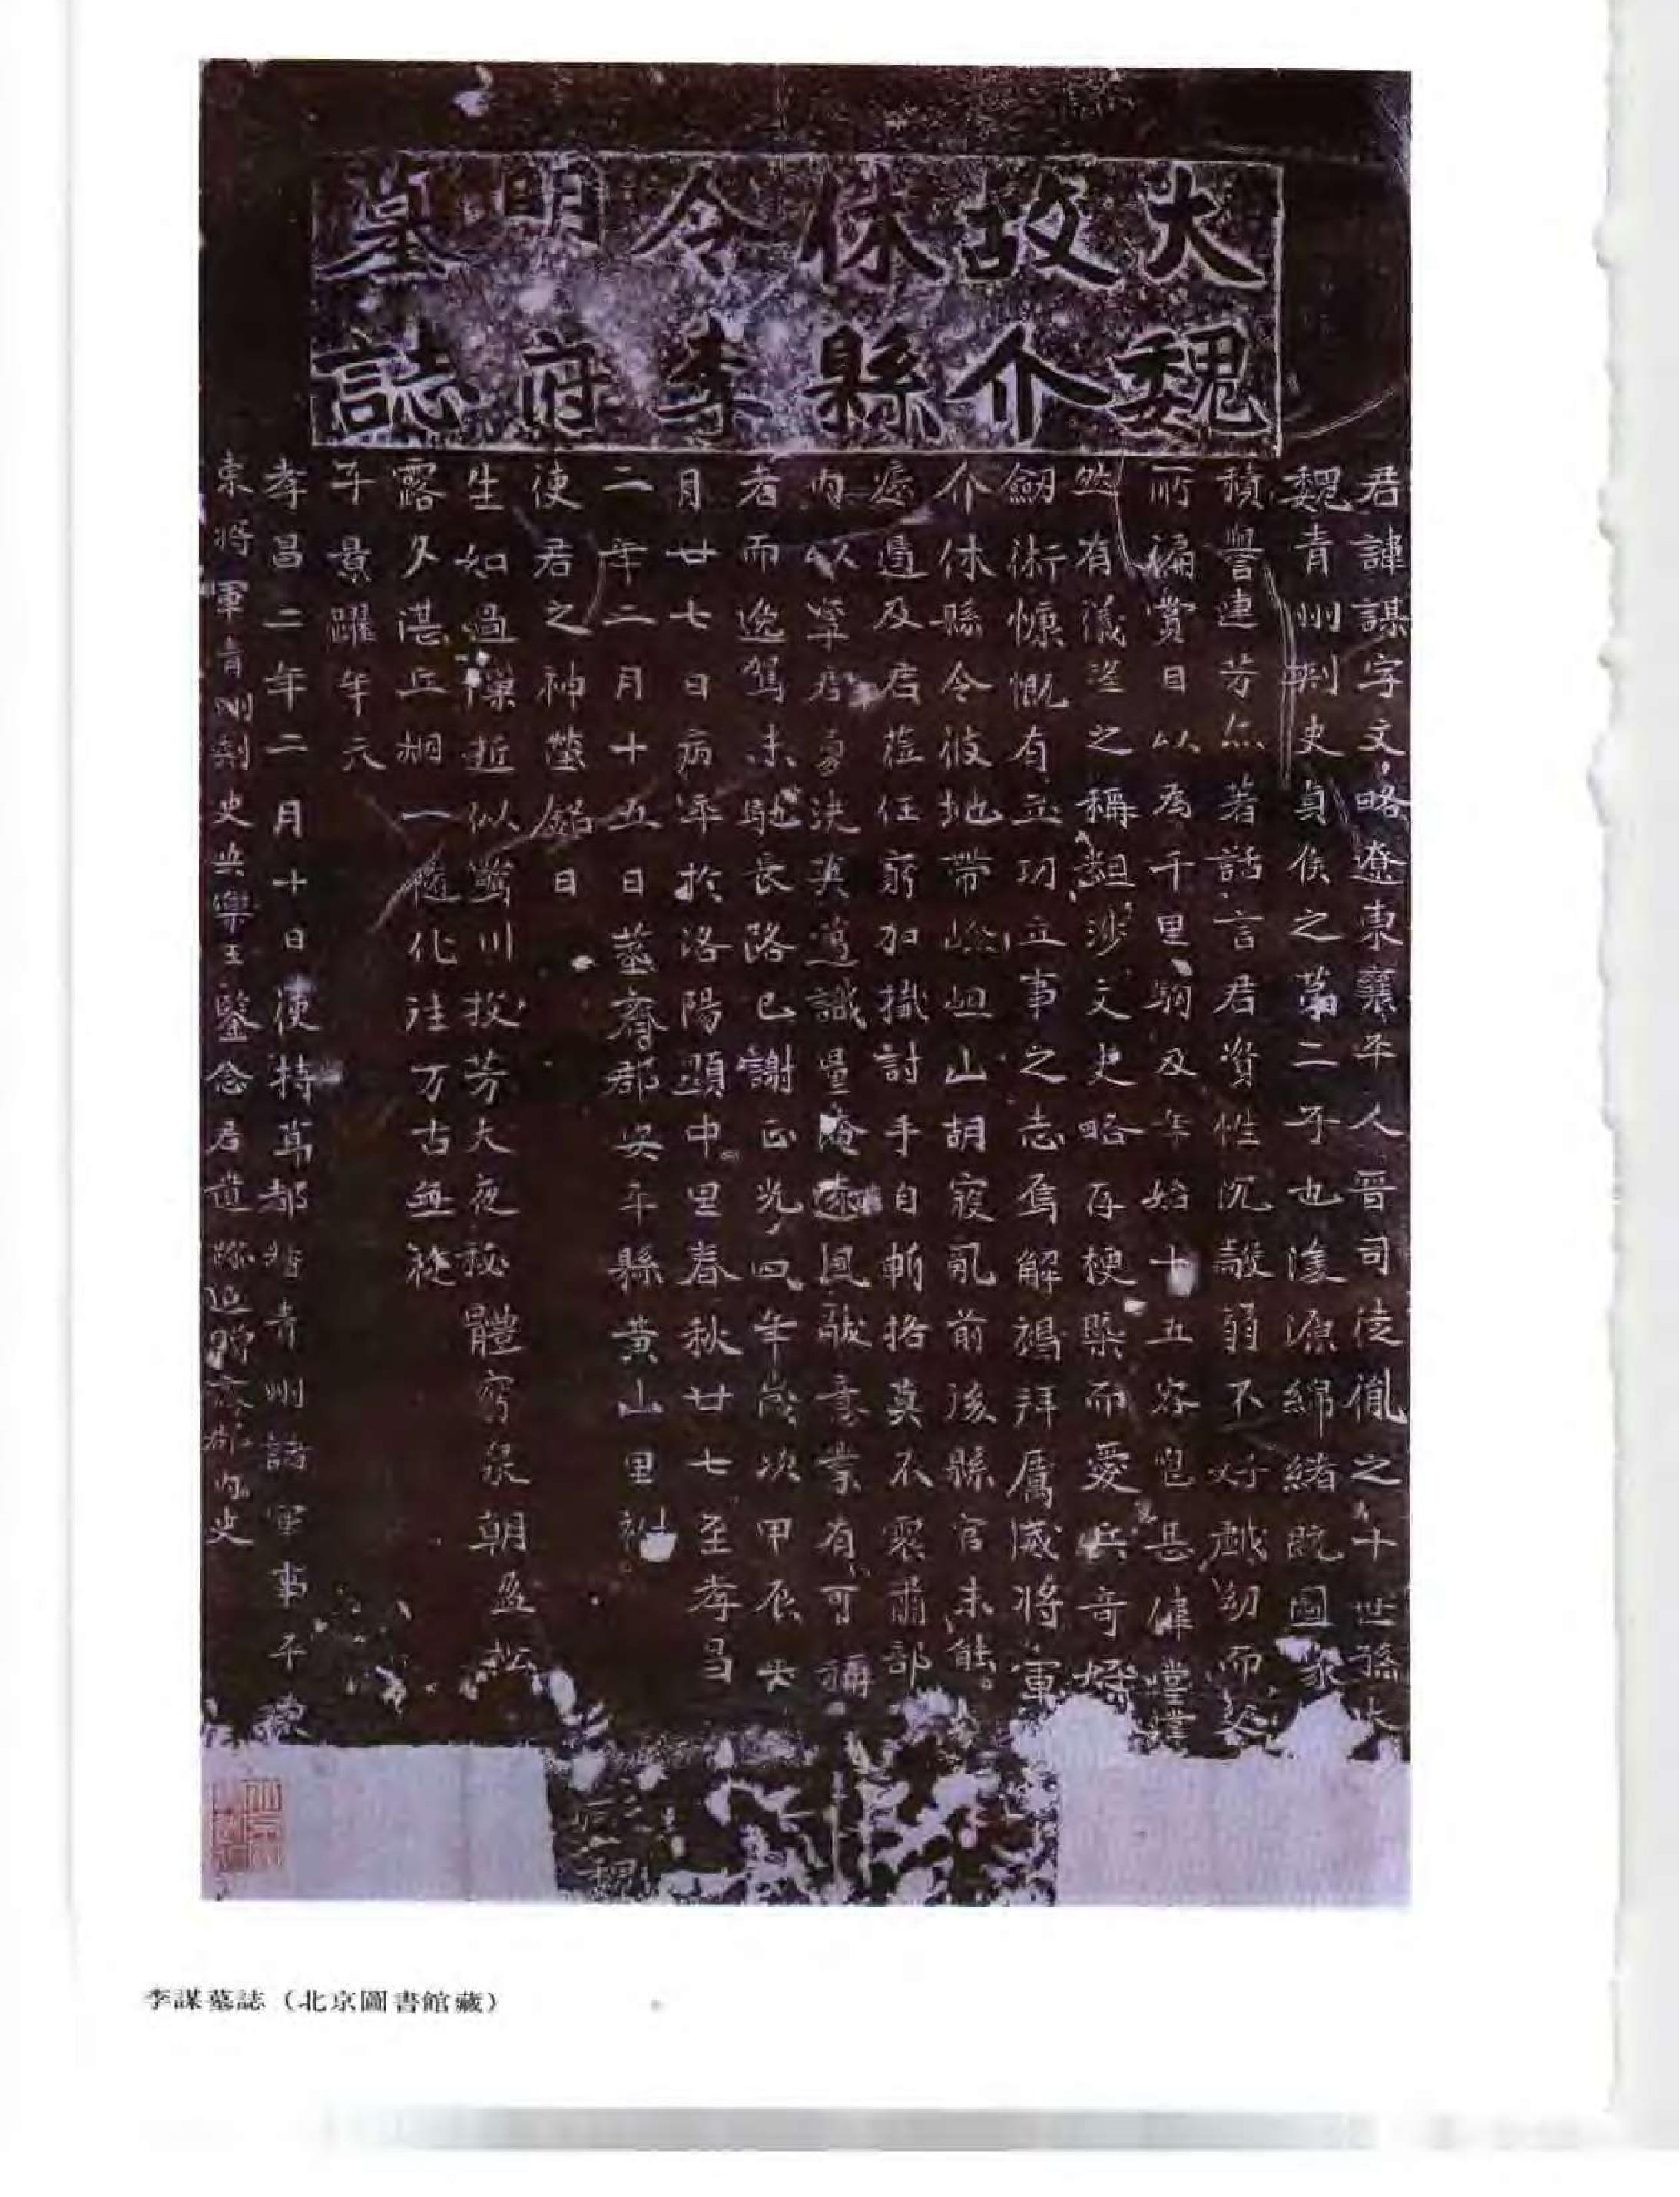 大魏
故介
休縣
令李
明府
墓誌
君諱謀字文略遼東襄平人晉司徒胤之十世孫大
魏青州刺史貞侯之第二子也濬源綿緒既國家
積譽連芳亦著話言君資性沉敏弱不好戲幼而父
所偏賞目以為千里駒及年始十五容皃甚偉堂堂
然有儀望之稱涉文史略存梗槩而愛兵奇好
劒術慷慨有立功立事之志焉解褐拜厲威將軍
介休縣令彼地帶嶮岨山胡寇亂前後縣官未能
邊及君蒞任窮加擒討手自斬挌莫不肅部
內以寧君英邁識量淹遠風意業有可稱
者而逸駕未馳長路已謝正光四年歲次甲辰
月廿七日病卒於洛陽顯中里春秋廿七至孝昌
二年二月十五日葬齊郡安平縣黃山里
使君之神塋銘曰
生如過隟逝似驚川投芳大夜秘體窮泉朝盈松
露夕湛丘烟一隨化往万古無旋
子景躍年六
孝昌二年二月十日使持節都督青州諸軍事平
東將軍青州刺史安樂王鑒念君遺跡追贈齊郡內史
李謀墓誌（北京圖書館藏）